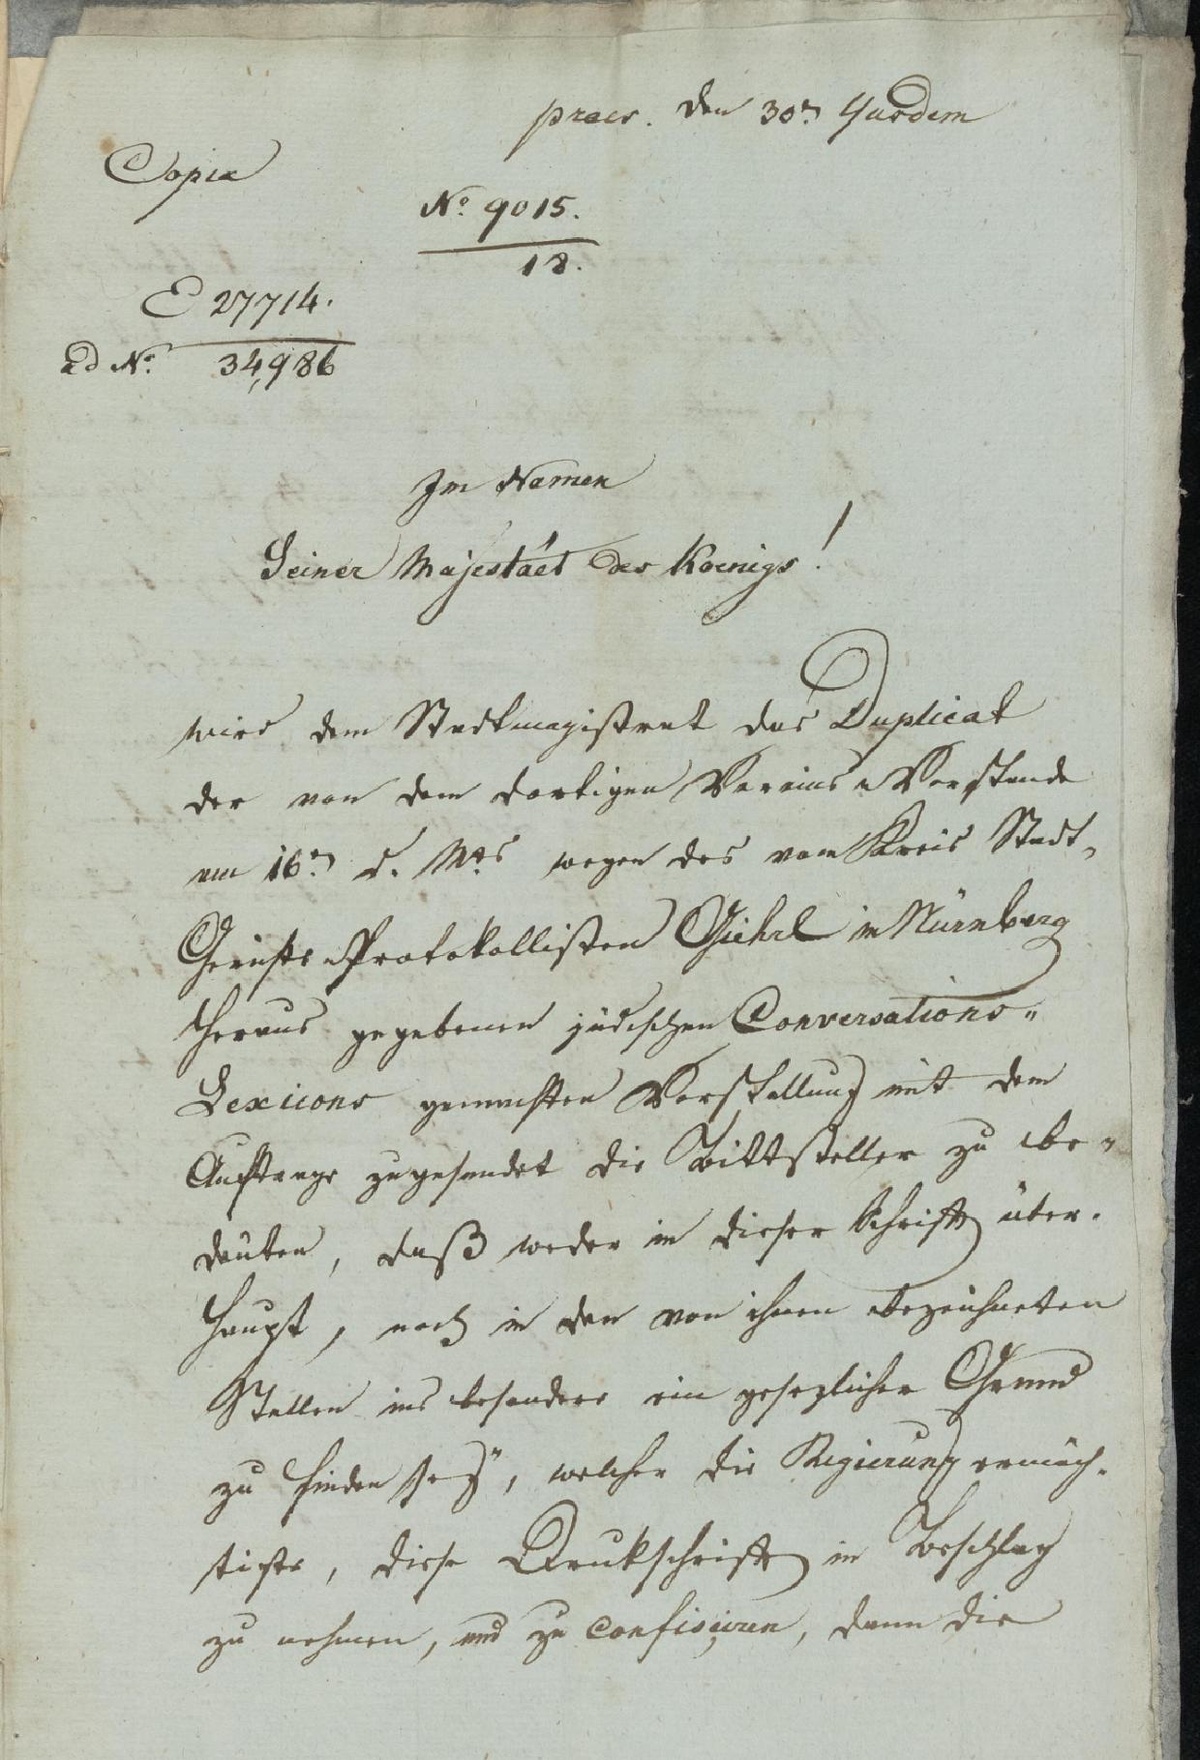 praes. den 30n ejusdem
Copia
No. 9015.
18.
E 27714.
ad No. 34,986
Im Namen
Seiner Majestaet des Koenigs!
wird dem Stadtmagistrat das Duplicat
der von dem dortigen Vereins Vorstande
am 16n d. Mts wegen des vom Kreis Stadt-
Gerichts Protokollisten Giehrl in Nürnberg
heraus gegebenen jüdischen Conversations-
Lexicons gemachten Vorstellung mit dem
Auftrage zugesendet die Bittsteller zu be-
deuten, daß weder in dieser Schrift über-
haupt, noch in den von ihnen bezeichneten
Stellen ins besondere ein gesezlicher Grund
zu finden seÿ, welcher die Regierung ermäch-
tigte, diese Drukschrift in Beschlag
zu nehmen, und zu confisciren, denn die